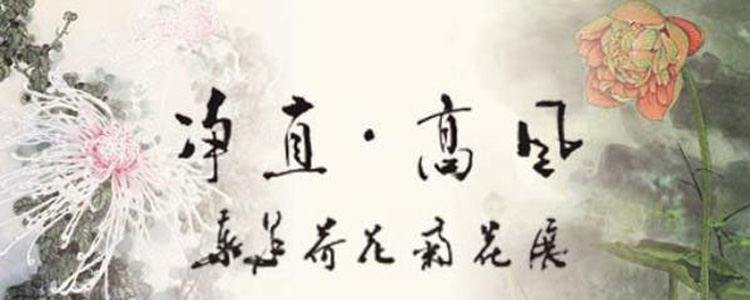 净直·高风
荷花菊花展